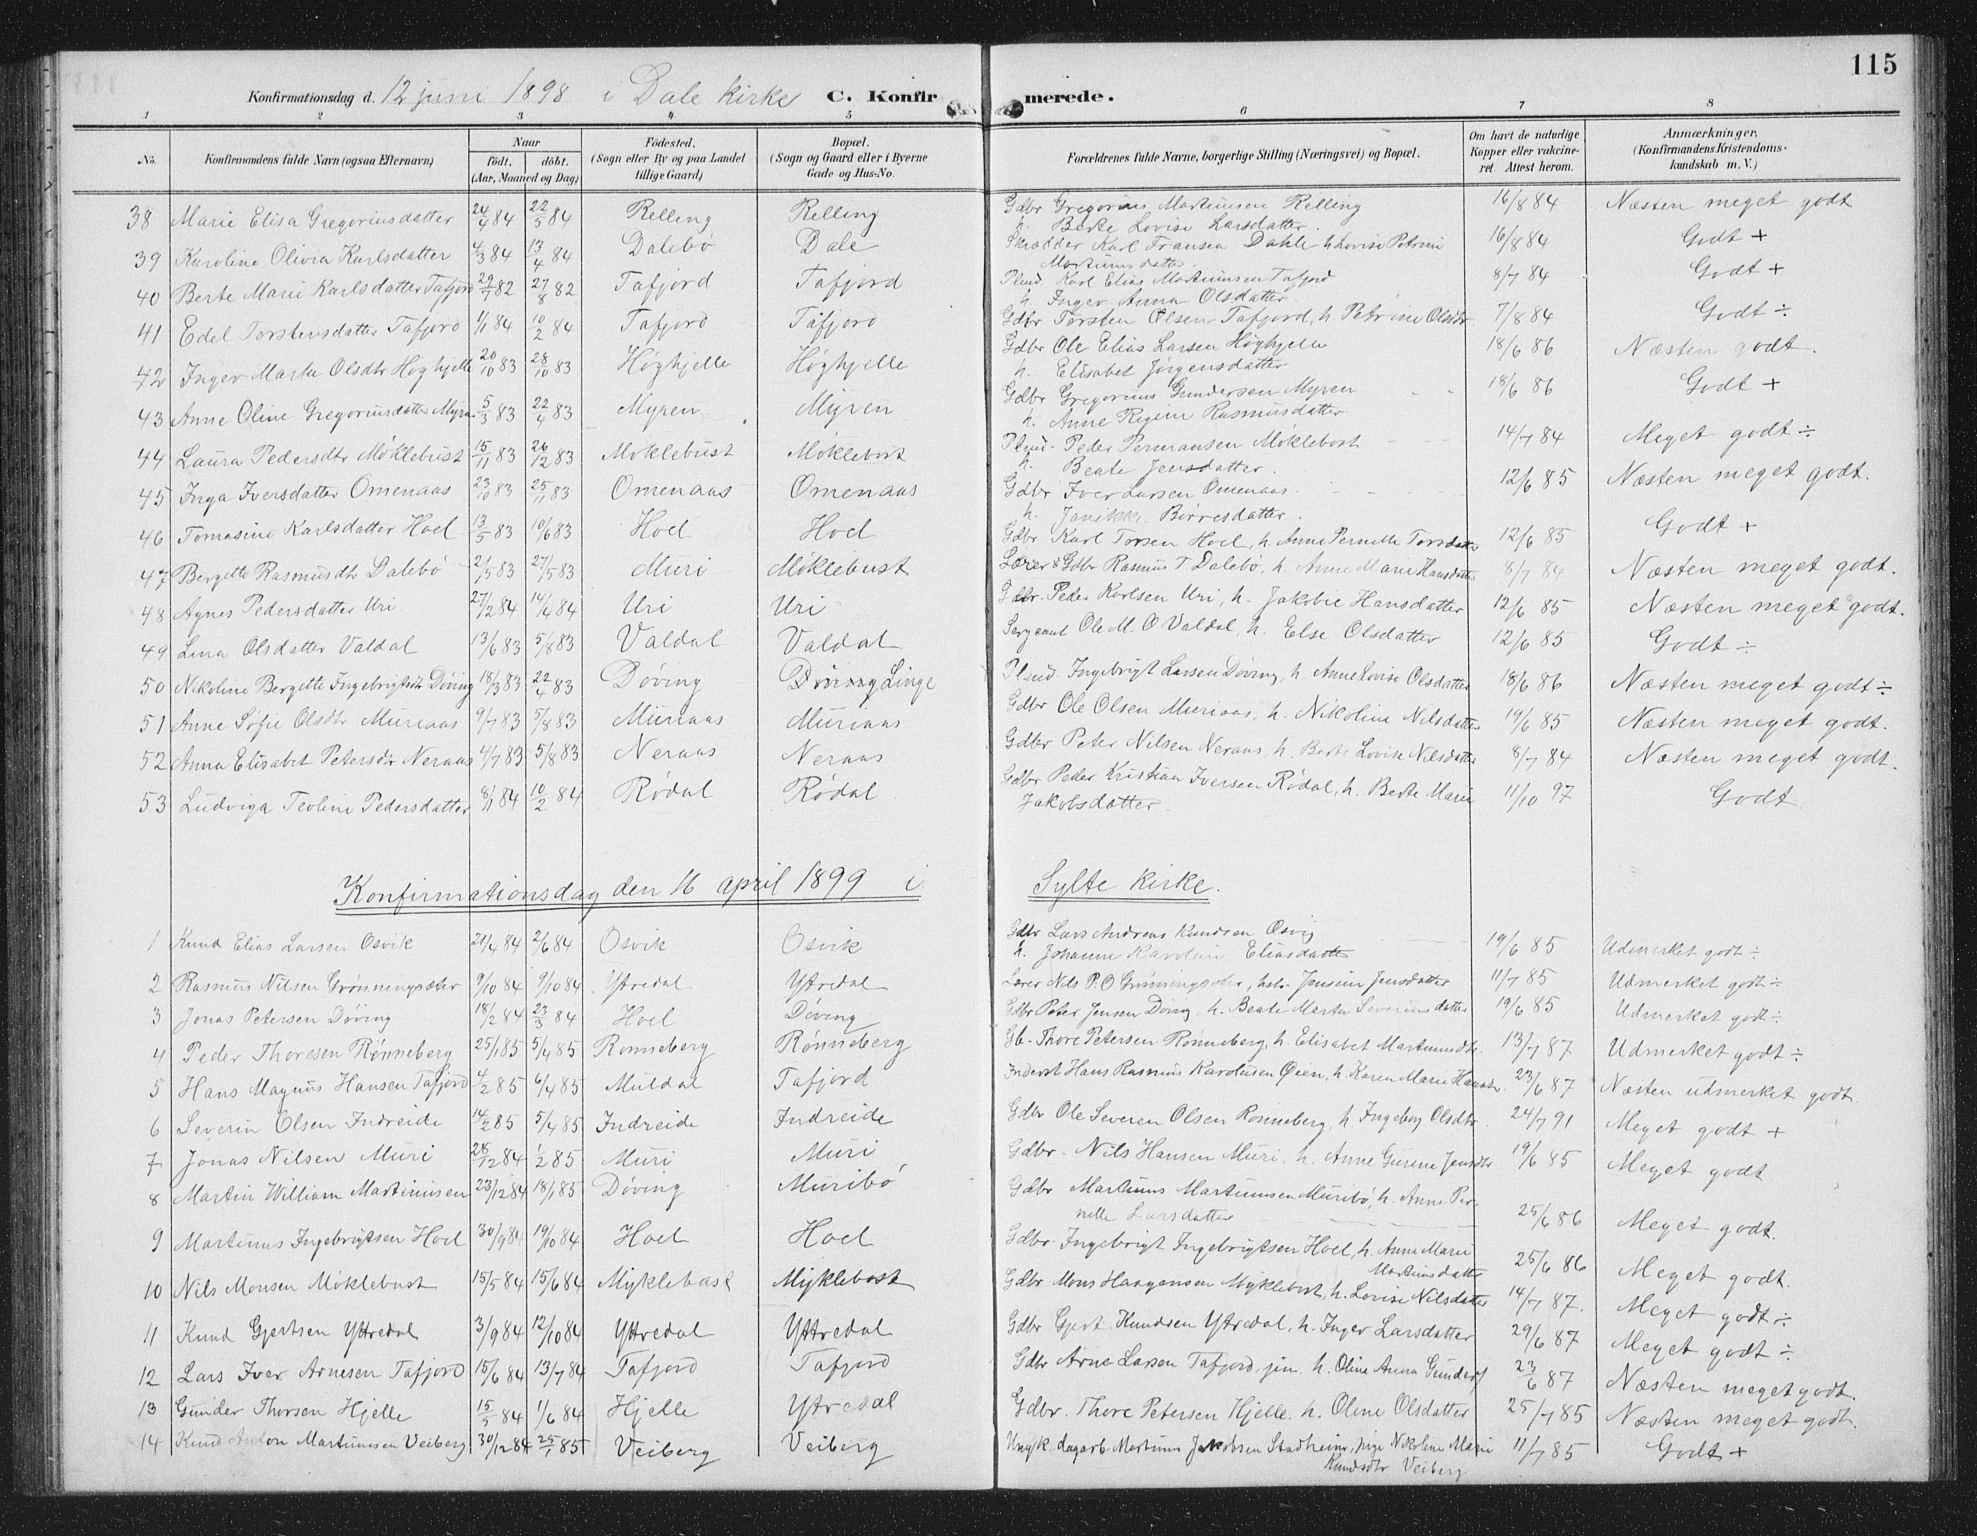 115
Konfirmationsdag d. 12 juni 1898 i Dale kirke C. Konfirmerede.
1 2 3 4 5 6 7 8
No. Konfirmandens fulde Navn (ogsaa Efternavn) Naar födt. döbt. (Aar, Maaned og Dag) Födested. (Sogn eller By og paa Landet tillige Gaard) Bopæl. (Sogn og Gaard eller i Byerne Gade og Hus-No. Forældrenes fulde Navne, borgerlige Stilling (Næringsvei) og Bopæl. Om havt de naturlige Kopper eller vakcineret. Attest herom. Anmærkninger. (Konfirmandens Kristendomskundskab m. V.)
38 Marie Elisa Gregoriusdatter 24/4 84 22/5 84 Relling Relling Gdbr Gregorius Martinusen Relling h. Berte Lovise Larsdatter. 16/8 84 Næsten meget godt
39 Karoline Olivia Karlsdatter 4/3 84 13/4 84 Dalebö Dale Skrædder Karl Fransen Dahle h Lovise Petrine Martinusdatter 16/8 84 Godt +
40 Berte Marie Karlsdatter Tafjord 29/7 82 27/8 82 Tafjord Tafjord Plmd Karl Elias Martinusen Tafjord h. Inger Anna Olsdatter 8/7 84 Godt +
41 Edel Torstensdatter Tafjord 1/1 84 10/2 84 Tafjord Tafjord Gdbr Torsten Olsen Tafjord, h Petrine Olsdtr 7/8 84 Godt ÷
42 Inger Marta Olsdtr Høghjelle 20/10 83 28/10 83 Höghjelle Høghjelle Gdbr Ole Elias Larsen Høghjelle h. Elisabet Jørgensdatter 18/6 86 Næsten godt.
43 Anne Oline Gregoriusdatter Myren 5/3 83 22/4 83 Myren Myren Gdbr Gregorius Gundersen Myren h. Anne Regine Rasmusdatter 18/6 86 Godt +
44 Laura Pedersdtr Möklebust 15/11 83 26/12 83 Moklebust Møklebost Plmd Peder Møklebost h. Beate Jensdatter. 14/7 84 Meget godt ÷
45 Inga Iversdatter Omenaas 23/10 83 83 Omenaas Omenaas Gdbr Iver Larsen Omenaas h. Børresdatter. 12/6 85 Næsten meget godt.
46 Tomasine Karlsdatter Hoel 13/5 83 10/6 83 Hoel Hoel Gdbr Karl Torsen Hoel, h. Anne Pernelle Torsdatter 12/6 85 Godt +
47 Bergette Rasmusdtr Dalebø 2/5 83 27/5 83 Muri Møklebust Lærer & Gdbr Rasmus T Dalebø, h. Anne Marie Hansdatter 8/7 84 Næsten meget godt.
48 Agnes Pedersdatter Uri 27/2 84 14/4 84 Uri Uri Gdbr. Peder Karlsen Uri, h. Jakobie Hansdatter 12/6 85 Næsten meget godt.
49 Lina Olsdatter Valdal 13/6 83 5/8 83 Valdal Valdal Sergeant Ole M. O Valdal, h. Else Olsdatter 12/6 85 Godt ÷
50 Nikoline Bergette Ingebrigtsdtr Döving 18/3 83 22/4 83 Døving Døving Linge Plmd. Ingebrigt Larsen Døving, h. Anne Lovise Olsdatter 18/6 86 Næsten meget godt ÷
51 Anne Sofie Olsdtr Muriaas 9/7 83 5/8 83 Muriaas Muriaas Gdbr Ole Olsen Muriaas, h. Nikoline Nilsdatter 19/6 85 Næsten meget godt.
52 Anna Elisabet Petersdtr Neraas 4/7 83 5/8 83 Neraas Neraas Gdbr Peter Nilsen Neraas, h. Berte Lovise Nilsdatter 8/7 84 Næsten meget godt.
53 Ludviga Teoline Pedersdatter 8/1 84 10/2 84 Rødal Rødal Gdbr Peder Kristian Iversen Rødal, h. Berte Marie Jakobsdatter. 11/10 97 Godt
Konfirmationsdag den 16 april 1899 i Sylte kirke.
1 Knud Elias Larsen Osvik 21/4 84 2/6 84 Osvik Osvik Gdbr Lars Andreas Knudsen Osvig h. Johanne Karoline Eliasdatter 19/6 85 Udmerket godt ÷
2 Rasmus Nilsen Grønningsæter 9/10 84 9/10 84 Yttredal Yttredal Lærer Nils P. O Grønningsæter, hstr. Jensine Jensdatter 11/7 85 Udmerket godt ÷
3 Jonas Petersen Døving 18/2 84 23/3 84 Hoel Døving Gdbr Peter Jensen Døving, h. Beate Marta Severinsdatter 19/6 85 Udmerket godt ÷
4 Peder Thoresen Rønneberg 25/1 85 5/4 85 Ronneberg Rønneberg Gb. Thore Petersen Rønneberg, h. Elisabet Martinusdtr. 13/7 87 Udmerket godt ÷
5 Hans Magnus Hansen Tafjord 4/2 85 6/4 85 Muldal Tafjord Inderst Hans Rasmus Karolusen Øien, h. Karen Marie Hansdtr. 23/6 87 Næsten udmerket godt.
6 Severin Olsen Indreide 14/2 85 5/4 85 Indreide Indreide Gdbr Ole Severen Olsen Ronneberg, h Ingeborg Olsdtr 24/7 91 Meget godt +
7 Jonas Nilsen Muri 28/12 84 1/2 85 Muri Muri Gdbr. Nils Hansen Muri, h. Anne Gurine Jensdtr 19/6 85 Meget godt
8 Martin William Martinusen 23/12 84 18/1 85 Døving Muribø Gdbr Martinus Martinusen Muribø, h. Anne Pernelle Larsdatter 25/6 86 Meget godt.
9 Martinus Ingebrigtsen Hoel 30/9 84 19/10 84 Hoel Hoel Gdbr. Ingebrigt Ingebrigtsen Hoel, h. Anne Marie Martinusdatter 25/6 86 Meget godt.
10 Nils Monsen Möklebust 15/5 84 15/6 84 Myklebust Myklebost Gdbr Mons Haagensen Myklebost, h. Lovise Nilsdatter 14/7 87. Meget godt ÷
11 Knud Gjertsen Yttredal 3/9 84 12/10 84 Yttredal Yttredal Gdbr Gjert Knudsen Yttredal, h. Inger Larsdatter 29/6 87 Meget godt ÷
12 Lars Iver Arnesen Tafjord 15/6 84 13/7 84 Tafjord Tafjord Gdbr Arne Larsen Tafjord, h. Oline Anna Gunder 23/6 87 Næsten meget godt.
13 Gunder Thorsen Hjelle 84 1/6 84 Hjelle Yttredal Gdbr. Thore Petersen Hjelle. h. Oline Olsdatter 25/7 85 Næsten meget godt.
14 Knud Anton Martinusen Veiberg 30/12 84 25/1 85 Veiberg Veiberg Ungk. dagarb. Martinus Jakobsen Stadheim, pige Nikoline Marie Knudsdtr Veiberg 11/7 85 Godt +